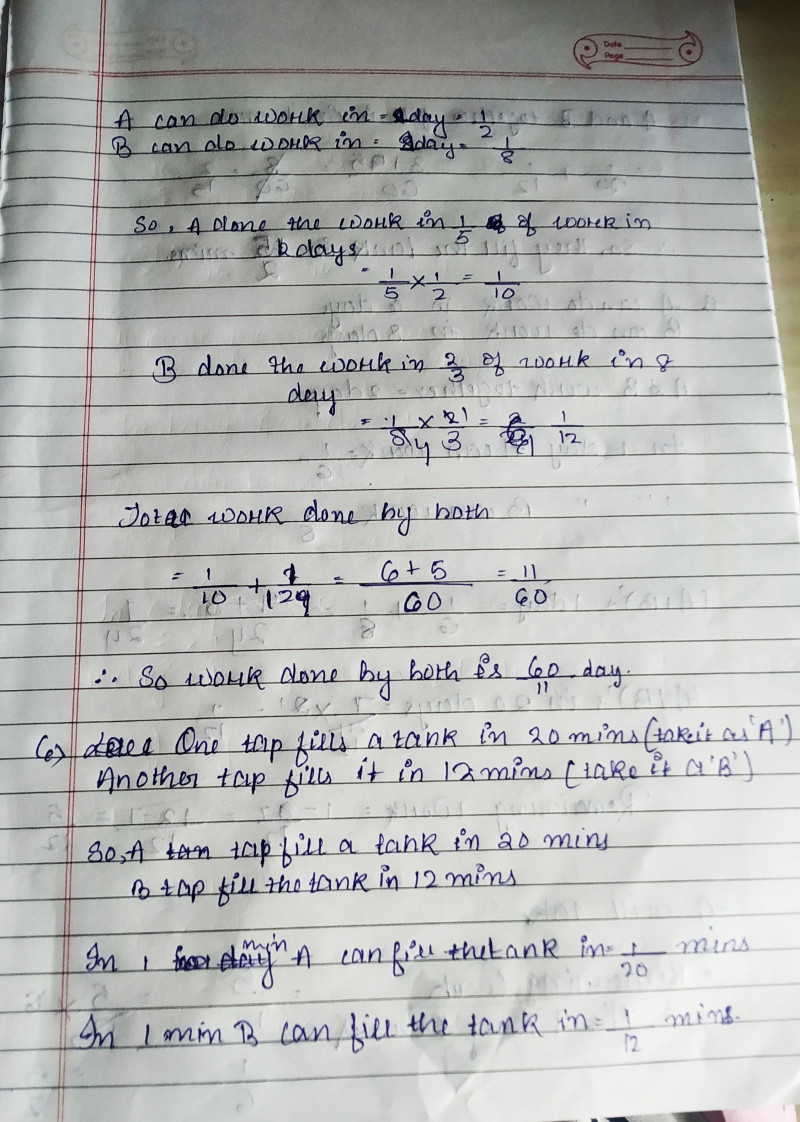 Date
Page
A can do work in = day = 1/2
B can do work in = day = 1/8
So, A done the work in 1/5 of work in
2 days
= 1/5 × 1/2 = 1/10
B done the work in 2/3 of work in 8
day
= 1/8 × 2/3 = 1/12
Total work done by both
= 1/10 + 1/12 = 6+5/60 = 11/60
∴ So work done by both is 60/11 day.
6) One tap fills a tank in 20 mins (take it as 'A')
Another tap fills it in 12 mins (take it a 'B')
So, A tap fill a tank in 20 mins
B tap fill the tank in 12 mins
In 1 min A can fill the tank in = 1/20 mins
In 1 min B can fill the tank in = 1/12 mins.